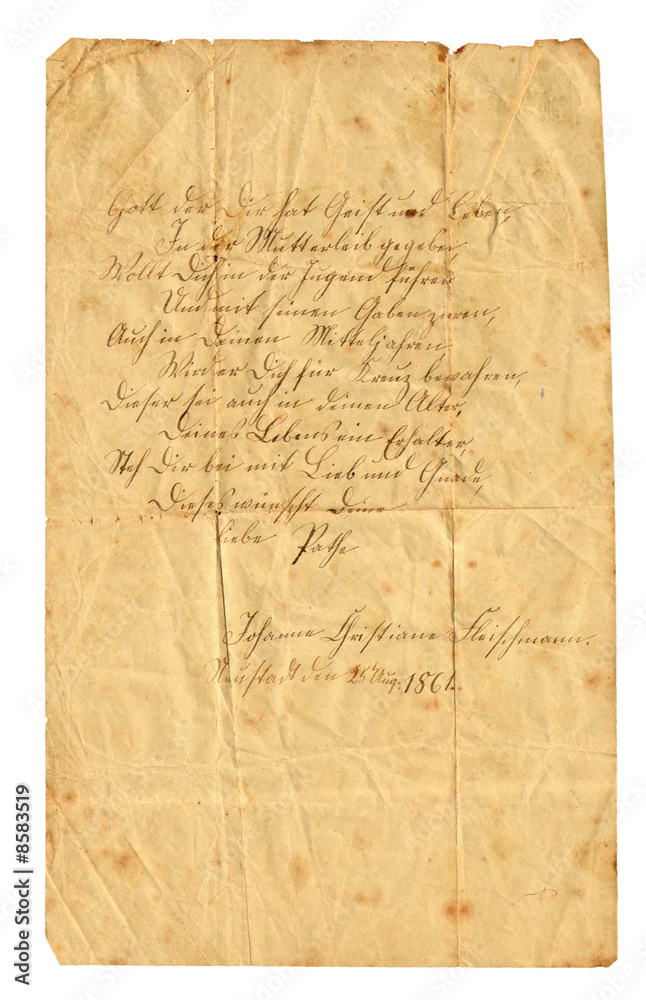 Gott der Dir hat Geist und Leben,
In der Mutterleib gegeben,
Wollt Dich in der Jugend führen
Und mit seinen Gaben zieren,
Auch in Deinen Mitteljahren
Wird er Dich für Kreuz bewahren,
Dieser sei auch in deinen Alter,
Deines Lebens ein Erhalter,
Steh Dir bei mit Lieb und Gnade,
Dieses wünscht Deine
liebe Pathe
Johanne Christiane Fleischmann.
Neustadt den 25t Aug. 1861.
Adobe Stock | #8583519